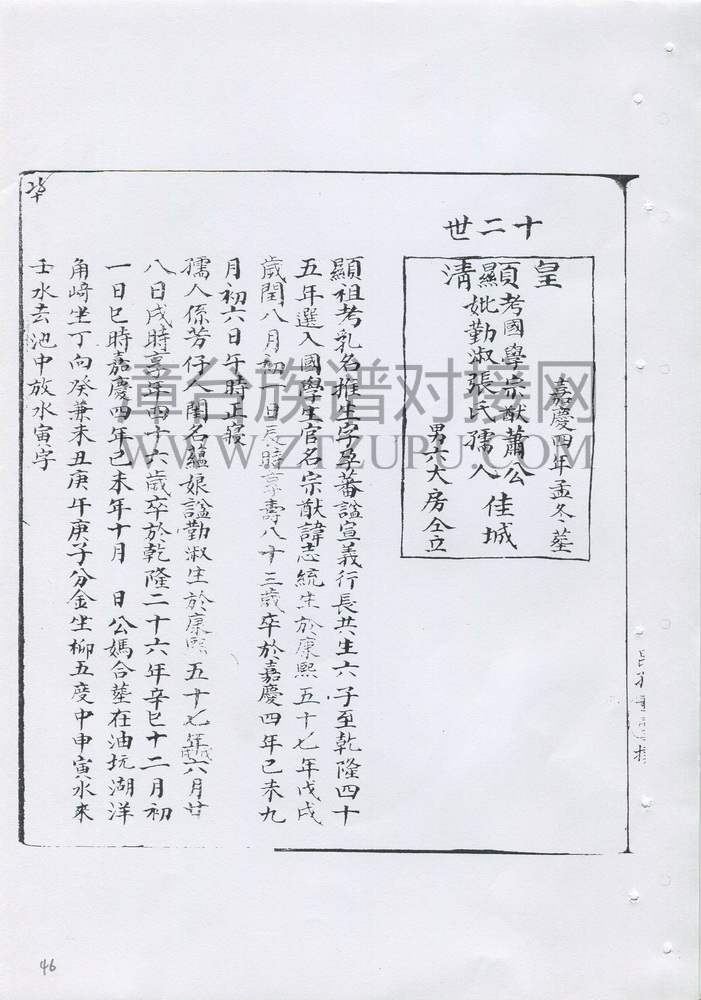 十二世
皇清
嘉慶四年孟冬葬
顯考國學宗猷蕭公
妣勤淑張氏孺人
佳城
男六大房仝立
顯祖考乳名推生字孕蕃諡宣義行長共生六子至乾隆四十
五年選入國學生官名宗猷諱志統生於康熙五十七年戊戌
歲閏八月初 日辰時享壽八十三歲卒於嘉慶四年己未九
月初六日午時正寢
孺人係芳仔人閨名蘊娘諡勤淑生於康熙五十七年戊戌六月廿
八日戌時享年四十六歲卒於乾隆二十六年辛巳十二月初
一日巳時嘉慶四年己未年十月 日公媽合葬在油坑湖洋
角崎坐丁向癸兼未丑庚午庚子分金坐柳五度中申寅水來
壬水去池中放水寅字
漳台族谱对接网
WWW.ZTZUPU.COM
46